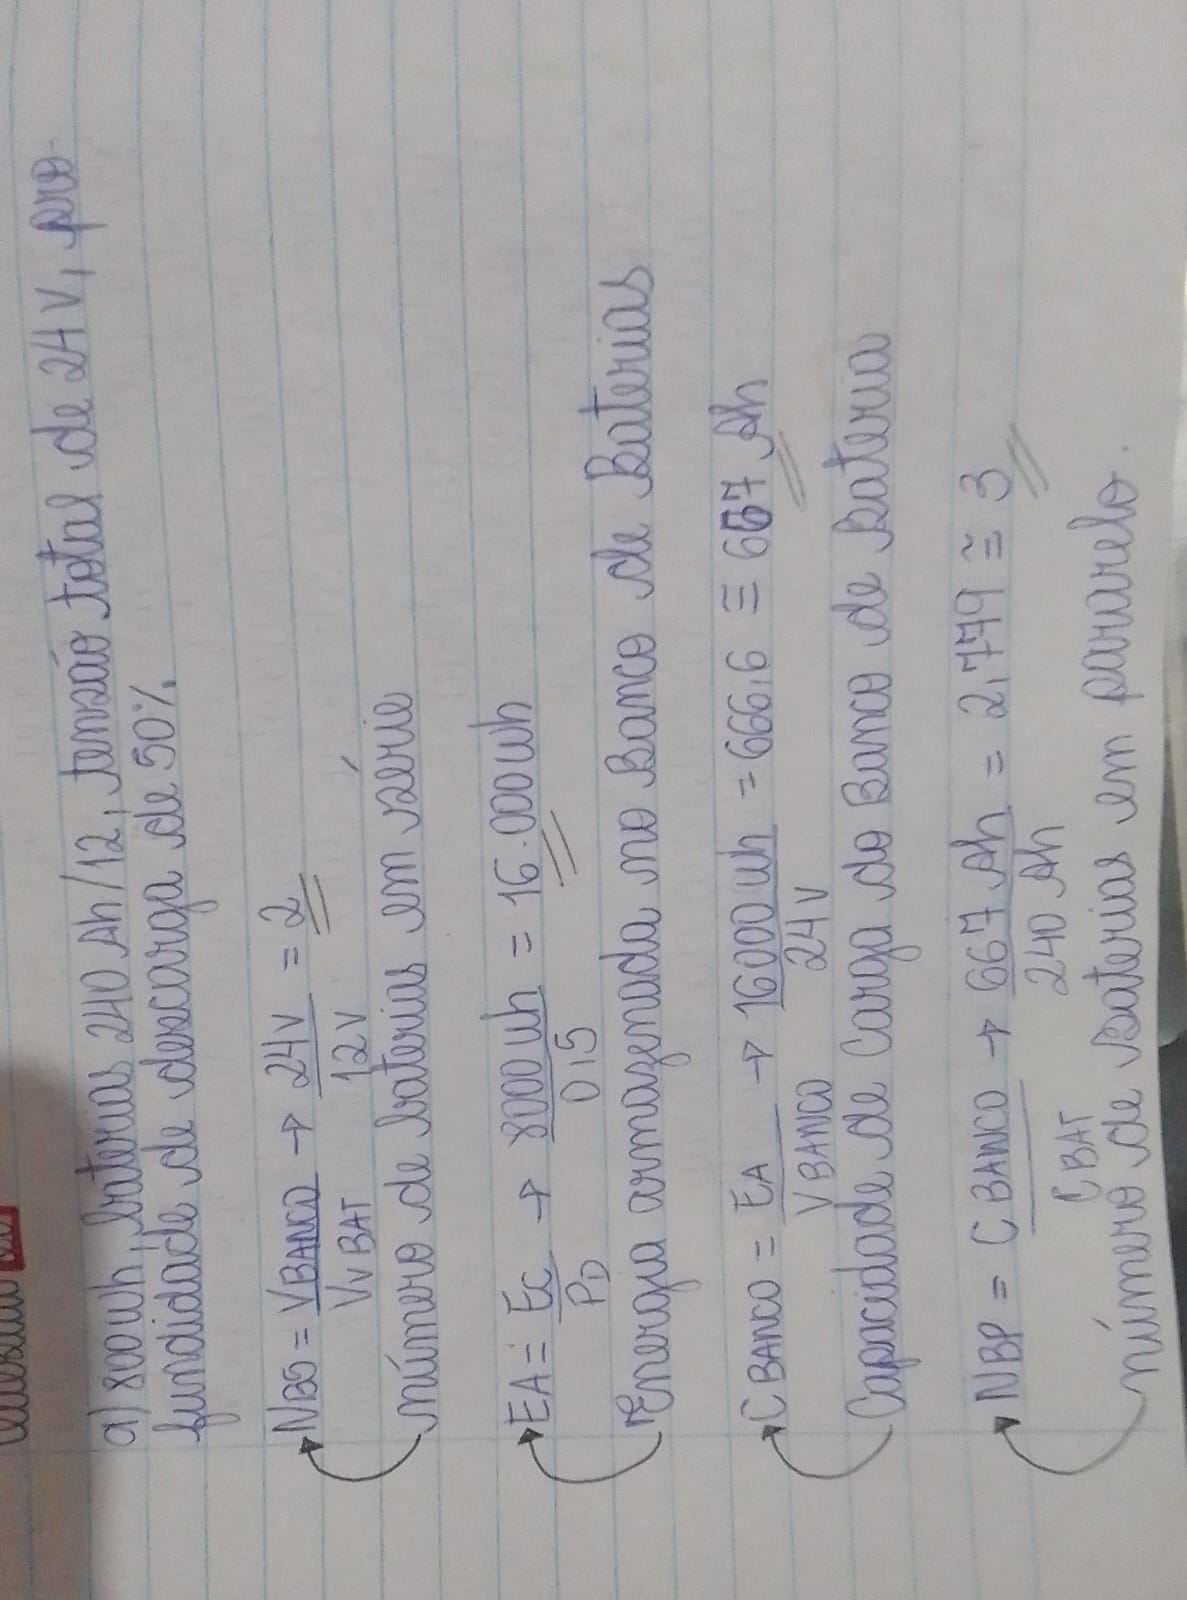 a) 800wh, baterias 240 Ah/12, tensão total de 24 V, pro-
fundidade de descarga de 50%.
NBS = VBANCO → 24V = 2
VvBAT 12V
número de baterias em série
EA = Ec → 8000wh = 16.000wh
PD 0,5
Energia armazenada no Banco de Baterias
CBANCO = EA → 16000wh = 666,6 ≅ 667 Ah
VBANCO 24V
Capacidade de Carga do Banco de Bateria
NBP = CBANCO → 667 Ah = 2,779 ≅ 3
CBAT 240 Ah
número de Baterias em pararelo.